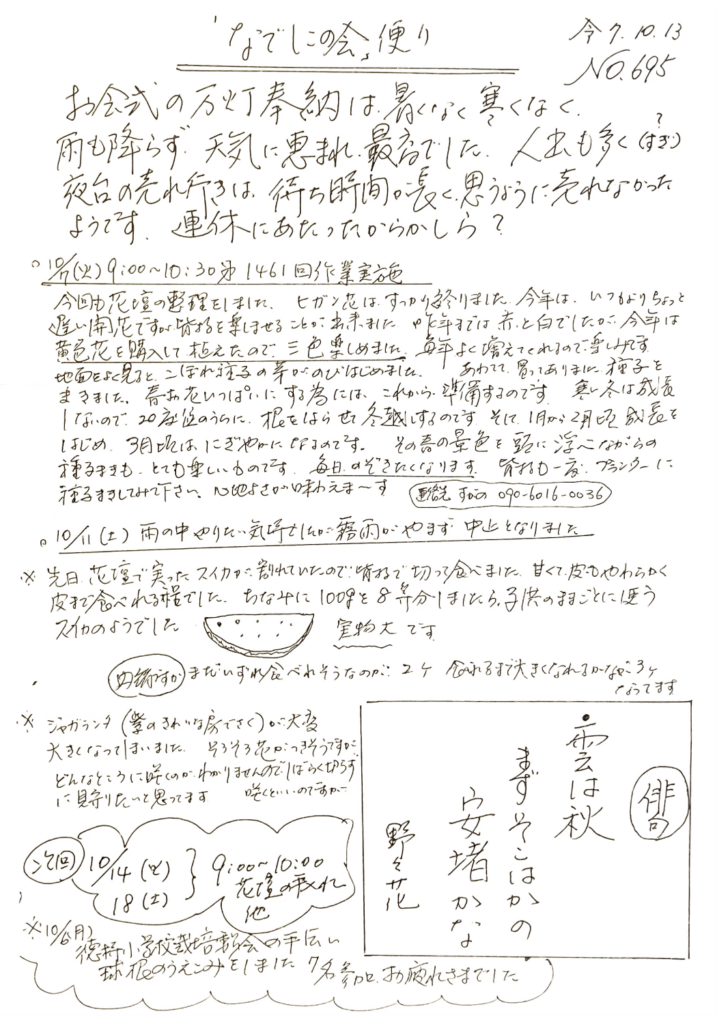 「なでしこの会」便り
令7.10.13
NO.695
お会式の万灯奉納は、暑くなく寒くなく、
雨も降らず、天気に恵まれ、最高でした。人出も多く(すぎ?)
夜台の売れ行きは、待ち時間が長く、思うように売れなかった
ようです。連休にあたったからかしら?
○10/7(火)9:00〜10:30第1461回作業実施
今回も花壇の整理をしました。ヒガン花はすっかり終りました。今年は、いつもよりちょっと
遅い開花ですが皆さまを楽しませることが出来ました。昨年までは赤と白でしたが、今年は
黄色花を購入して植えたので三色楽しめました。毎年よく増えてくれるので楽しみです。
地面をよく見ると、こぼれ種子の芽がのびはじめました。あわてて、買ってありました種子を
まきました。春お花いっぱいにする為には、これから準備するのです。寒い冬は成長
しないので、20度位のうちに、根をはらせて冬越しするのです。そして、1月から2月頃成長を
はじめ、3月頃は、にぎやかになるのです。その春の景色を頭に浮べながらの
種まきも、とても楽しいものです。毎日のぞきたくなります。皆様も一度、プランターに
種まきしてみて下さい。心地よさが味わえま〜す
連絡先 すがの 090-6016-0036
○10/11(土)雨の中やりたい気持でしたが霧雨がやまず中止となりました
※先日花壇で実ったスイカが、割れていたので皆さまで切って食べました。甘くて、皮もやわらかく
皮まで食べれる程でした。ちなみに100gを8等分しましたら、子供のままごとに使う
スイカのようでした
実物大です
まだいずれ食べれそうなのが、2ケ 食べれるまで大きくなれるかな…3ケ
なってます
※ジャガランタ(紫のきれいな房でさく)が大変
大きくなってしまいました。そろそろ花がつきそうですが、
どんなところに咲くのか、わかりませんのでしばらく切らず
に見守りたいと思ってます 咲くといいのですが…
俳句
雲は秋
まずそこはかの
安堵かな
野々花
次回
10/14(火)
18(土)
9:00〜10:00
花壇の手入れ
他
※10/6(月)
小学校栽培委員会の手伝い
球根のうえこみをしました 7名参加、お疲れさまでした